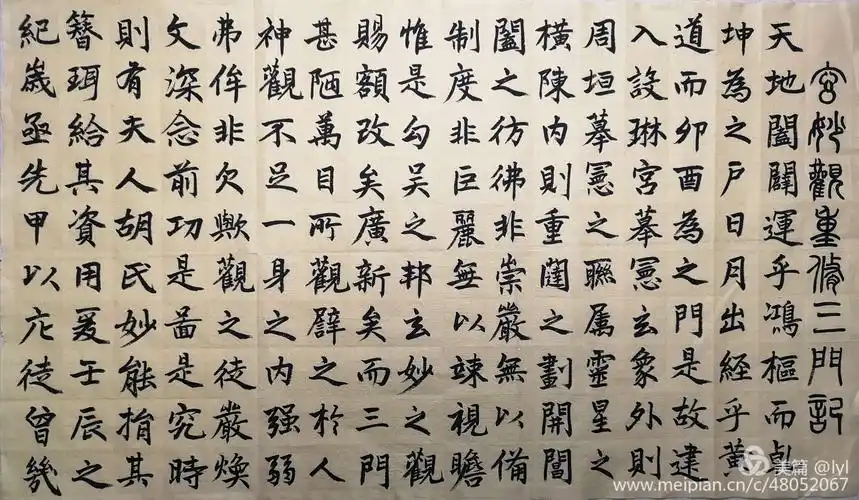 玄妙觀重脩三門記
天地闔闢運乎鴻樞而乾
坤為之戶日月出經乎黃
道而卯酉為之門是故建
入設琳宮摹憲玄象外則
周垣摹憲之聯属靈星之
橫陳内則重闥之劃開閶
闔之彷彿非崇嚴無以備
制度非巨麗無以竦視瞻
惟是勾吴之邦玄妙之觀
賜額改矣廣新矣而三門
甚陋萬目所觀譬之於人
神觀不足一身之内强弱
弗侔非欠歟觀之徒嚴煥
文深念前功是啚是究時
則有夫人胡氏妙能捐其
簪珥給其資用爰壬辰之
紀歲亟先甲以庀徒曾幾
美篇 @lyl
www.meipian.cn/c/48052067